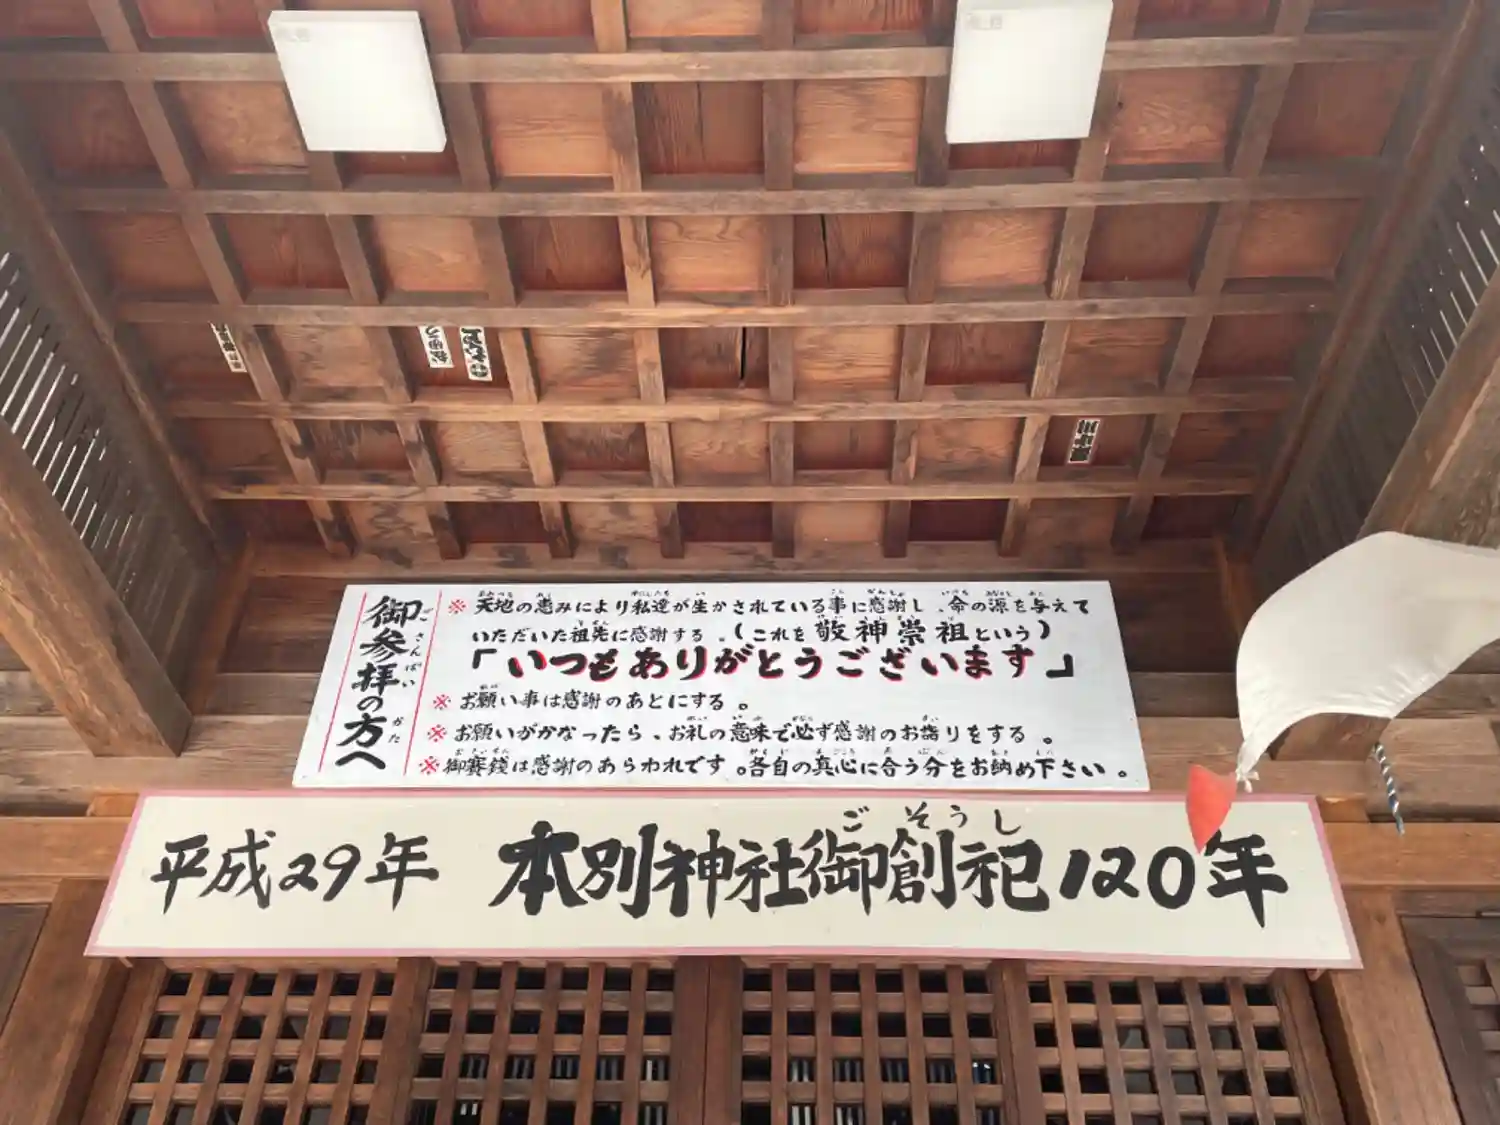 御参拝の方へ
ごさんぱい かた
※ 天地の恵みにより私達が生かされている事に感謝し、命の源を与えて
いただいた祖先に感謝する。(これを敬神崇祖という)
「いつもありがとうございます」
※ お願い事は感謝のあとにする。
※ お願いがかなったら、お礼の意味で必ず感謝のお詣りをする。
※ 御賽銭は感謝のあらわれです。各自の真心に合う分をお納め下さい。
ごそうし
平成29年 本別神社御創祀120年